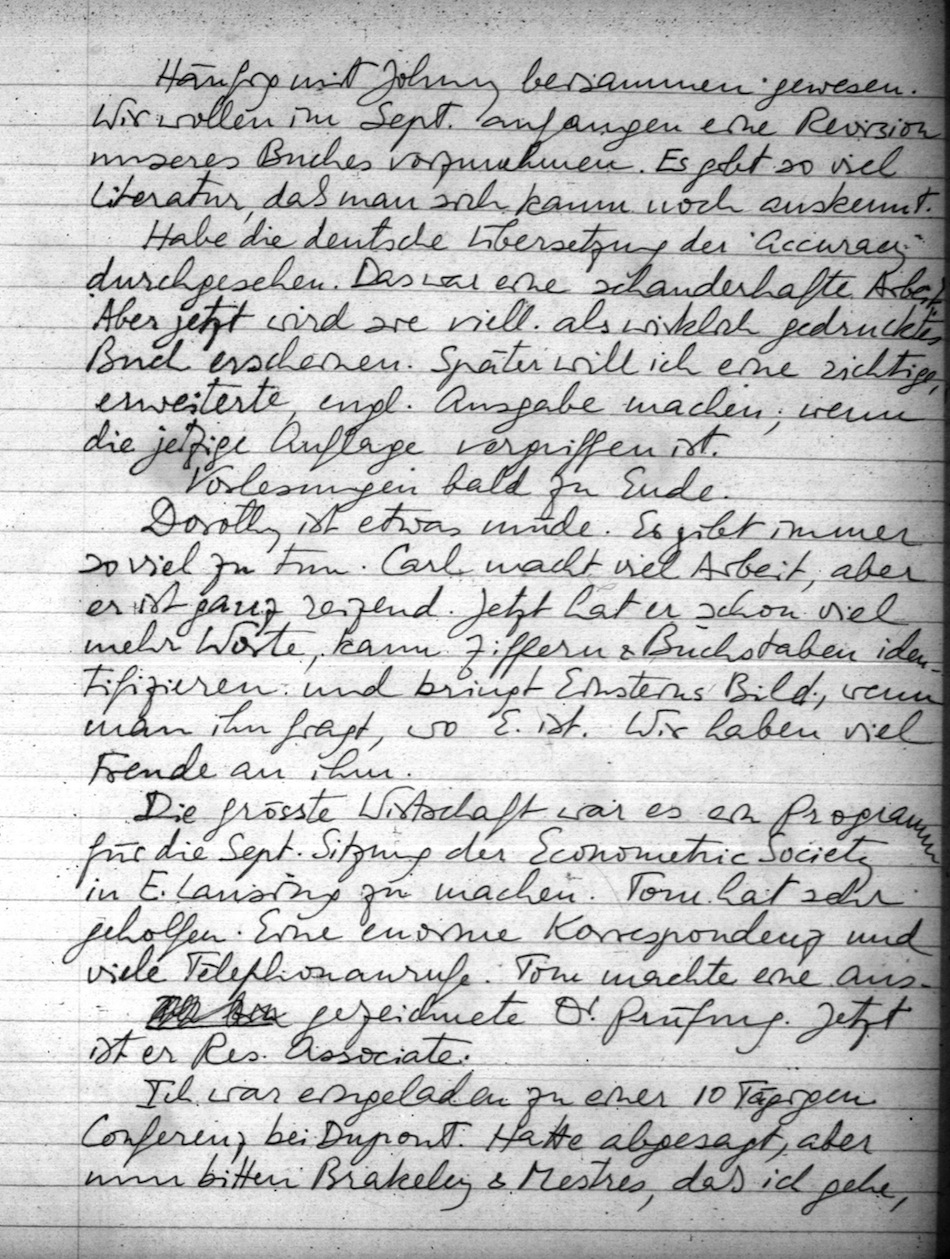 Häufig mit Johnny beisammen gewesen.
Wir wollen im Sept. anfangen eine Revision
unseres Buches vorzunehmen. Es gibt so viel
Literatur, daß man sich kaum noch auskennt.
Habe die deutsche Übersetzung der "Accuracy"
durchgesehen. Das war eine schauderhafte Arbeit.
Aber jetzt wird sie viell. als wirklich gedrucktes
Buch erscheinen. Später will ich eine richtige,
erweiterte, engl. Ausgabe machen, wenn
die jetzige Auflage vergriffen ist.
Vorlesungen bald zu Ende.
Dorothy ist etwas müde. Es gibt immer
so viel zu tun. Carl macht viel Arbeit, aber
er ist ganz reizend. Jetzt hat er schon viel
mehr Worte, kann Ziffern & Buchstaben iden-
tifizieren und bringt Einsteins Bild, wenn
man ihn fragt, wo E. ist. Wir haben viel
Freude an ihm.
Die grösste Wirtschaft war es ein Programm
für die Sept. Sitzung der Econometric Society
in E. Lansing zu machen. Tom hat sehr
geholfen. Eine enorme Korrespondenz und
viele Telephonanrufe. Tom machte eine aus-
gezeichnete Dr. Prüfung. Jetzt
ist er Res. Associate.
Ich war eingeladen zu einer 10 Tägigen
Conferenz bei Dupont. Hatte abgesagt, aber
nun bitten Brakeley & Mestres, daß ich gehe,